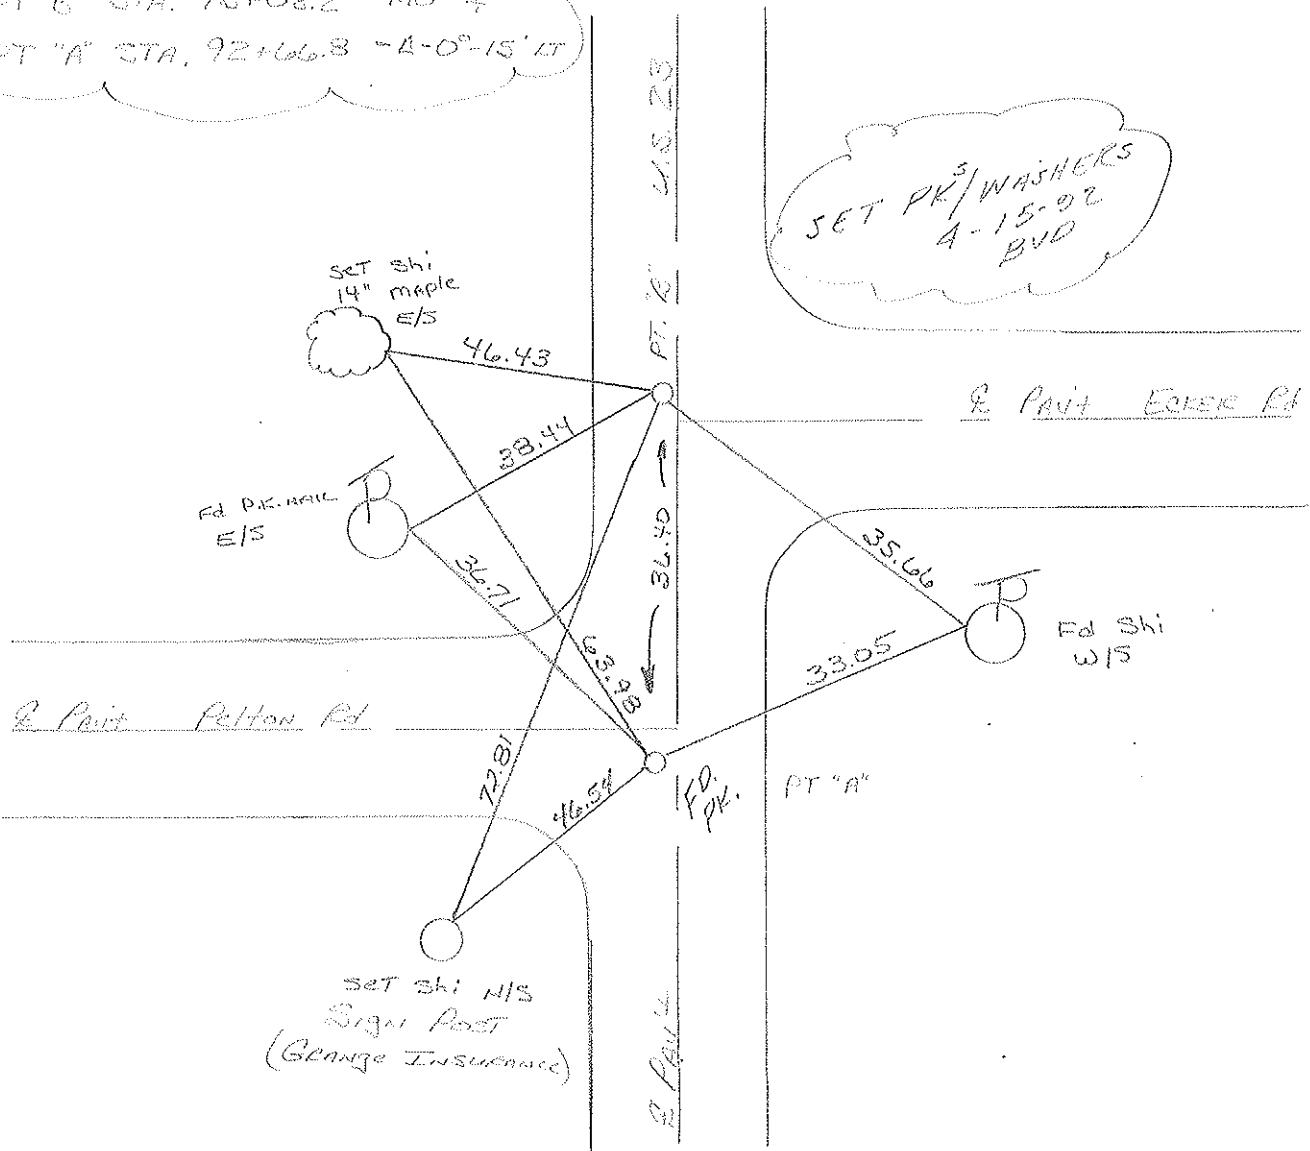 PT "A" STA. 92+66.8 -Δ-0°-15' LT
U.S. 23
SET PKs/WASHERS
4-15-92
BVD
SET Shi
14" MAPLE
E/S
PT. "B"
46.43
℄ PAV'T ECKER Rd
38.44
Fd P.K. NAIL
E/S
36.40
35.66
36.71
Fd Shi
W/S
63.98
33.05
℄ PAV'T Pelton Rd
72.81
46.54
FD.
PK.
PT "A"
SET Shi N/S
Sign Post
(GRANGE INSURANCE)
℄ PAV'T